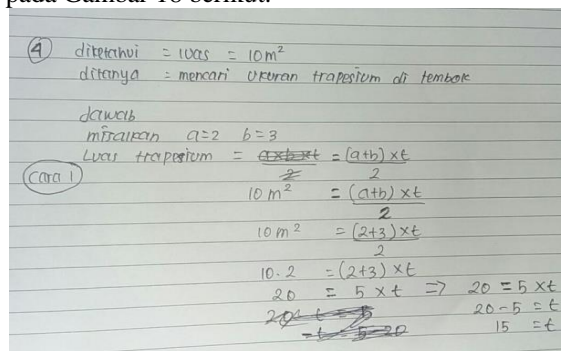 pada Gambar 18 berikut.
4 diketahui = luas = 10 m²
ditanya = mencari ukuran trapesium di tembok
Jawab
misalkan a=2 b=3
Luas trapesium = a×b×t/2 = (a+b) × t / 2
Cara 1
10 m² = (a+b) × t / 2
10 m² = (2+3) × t / 2
10 . 2 = (2+3) × t
20 = 5 × t => 20 = 5 × t
20 - 5 = t
15 = t